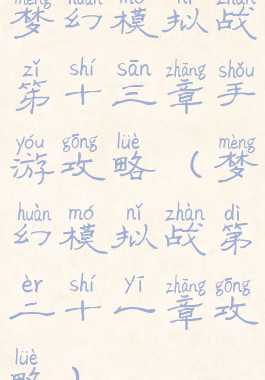 mèng huàn mó nǐ zhàn
梦幻模拟战
zǐ shí sān zhāng shǒu
第十三章手
yóu gōng lüè mèng
游攻略（梦
huàn mó nǐ zhàn dì
幻模拟战第
èr shí yī zhāng gōng
二十一章攻
lüè
略）